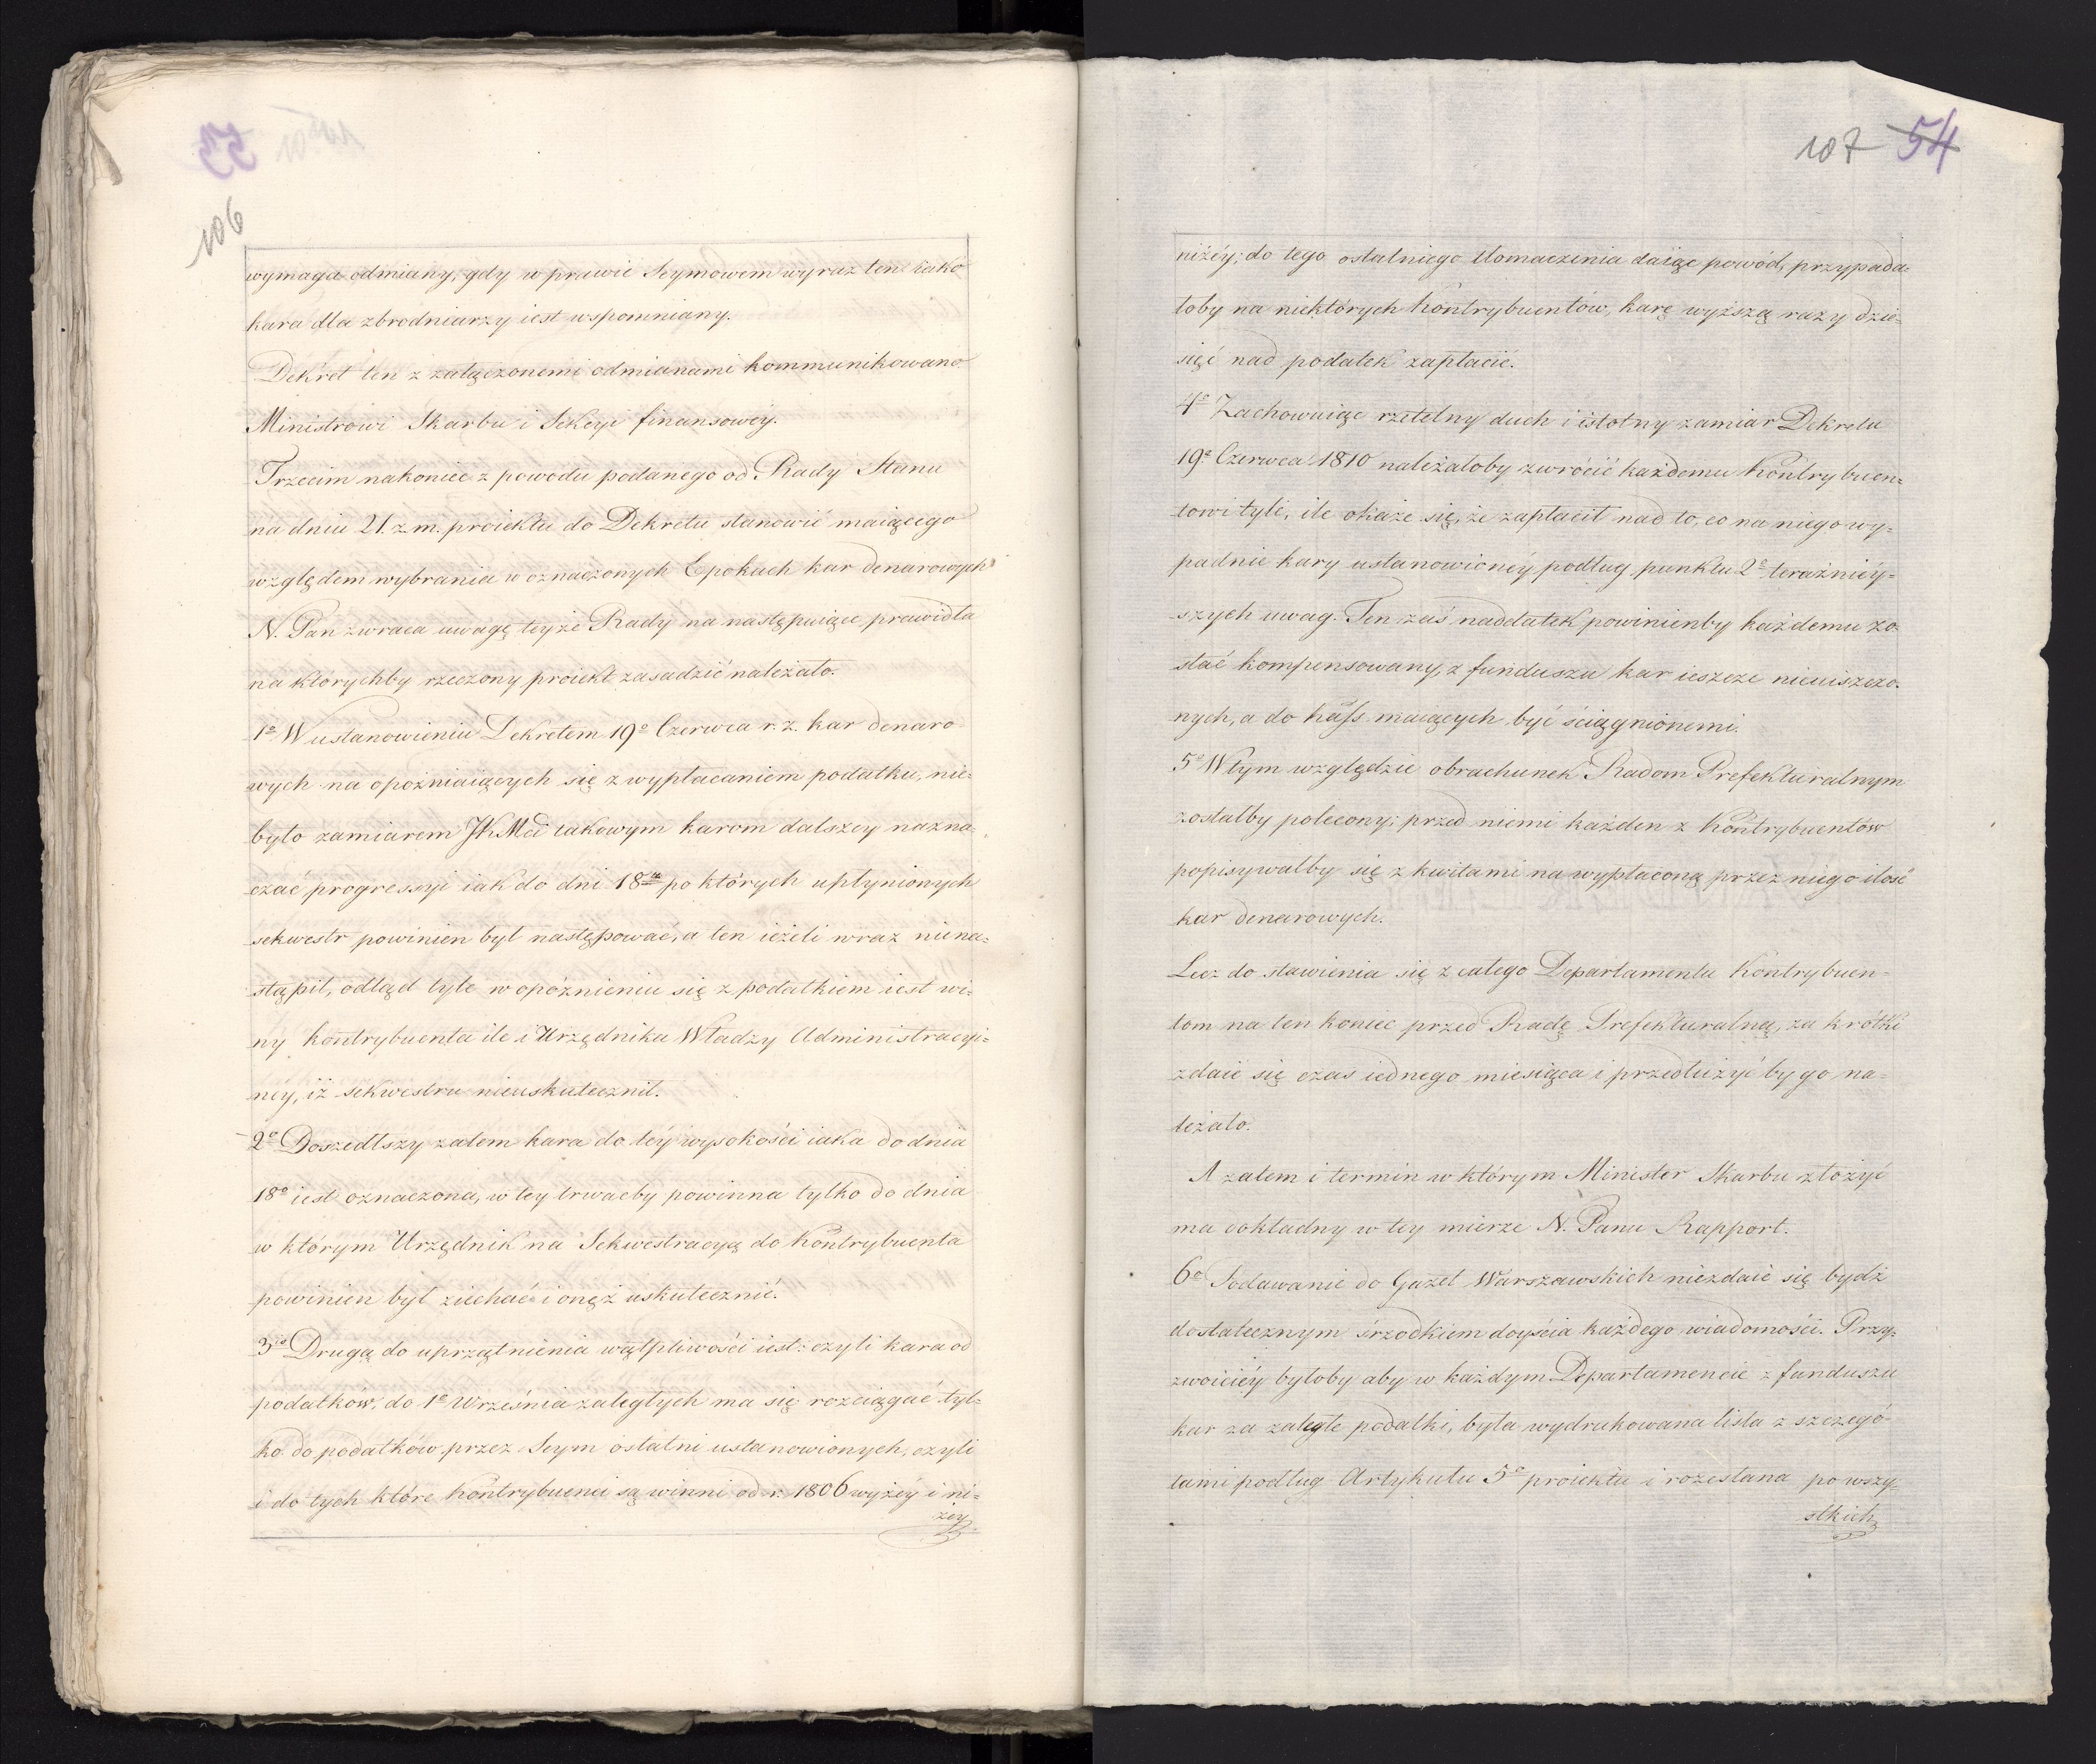 106
wymaga odmiany, gdy w prawie Seymowem wyraz ten iako
kara dla zbrodniarzy iest wspomniany.
Dekret ten z załączonemi odmianami kommunikowano
Ministrowi Skarbu i Sekcyi finansowéy.
Trzecim nakoniec z powodu podanego od Rady Stanu
na dniu 21. z. m. proiektu do Dekretu stanowić maiącego
względem wybrania w oznaczonych Epokach kar denarowych
N. Pan zwraca uwagę teyże Rady na następuiące prawidła
na którychby rzeczony proiekt zasadzić należało.
1º W ustanowieniu Dekretem 19º Czerwca r. z. kar denaro
wych na opoźniaiących się z wypłacaniem podatku, nie=
było zamiarem JKMci takowym karom dalszey nazna=
czać progressyi iak do dni 18tu po których upłynionych
sekwestr powinien był następować, a ten ieżeli wraz niena=
stąpił, odtąd tyle w opóźnieniu się z podatkiem iest wi=
ny kontrybuenta ile i Urzędnika Władzy Administracyi=
néy, iż sekwestru nieuskutecznił.
2º Doszedłszy zatem kara do téy wysokości iaka do dnia
18º iest oznaczona, w tey trwacby powinna tylko do dnia
w którym Urzędnik na Sekwestracyą do Kontrybuenta
powinien był ziechać i onęż uskutecznić.
3io Drugą do uprzątnienia wątpliwości iest: czyli kara od
podatków, do 1º Września zaległych ma się rozciągać tyl=
ko do podatków przez Seym ostatni ustanowionych, czyli
i do tych które kontrybuenci są winni od r. 1806 wyżéy i ni=
żéy
107 54
niźéy; do tego ostatniego tłomaczenia daiąc powód, przypada=
łoby na niektórych Kontrybuentów, karę wyższą razy dzie=
sięć nad podatek zapłacić.
4º Zachowuiąc rzetelny duch i istotny zamiar Dekretu
19º Czerwca 1810 należałoby zwrócić każdemu Kontrybuen=
towi tyle, ile okaże się, że zapłacił nad to, co na niego wy=
padnie kary ustanowionéy podług punktu 2º teraźniéy=
szych uwag. Ten zaś naddatek powinienby każdemu zo=
stać kompensowany, z funduszu kar ieszcze nieuiszczo=
nych, a do kass maiących być ściągnionemi.
5º W tym względzie obrachunek Radom Prefekturalnym
zostałby polecony; przed niemi każden z Kontrybuentów
popisywałby się z kwitami na wypłaconą przez niego ilość
kar denarowych.
Lecz do stawienia się z całego Departamentu Kontrybuen=
tom na ten koniec przed Radę Prefekturalną, za krótki
zdaie się czas iednego miesiąca i przedłużyć by go na=
leżało.
A zatem i termin w którym Minister Skarbu złożyć
ma dokładny w tey mierze N. Panu Rapport.
6º Podawanie do Gazet Warszawskich niezdaie się bydź
dostatecznym śrzodkiem doyścia każdego wiadomości. Przy=
zwoiciéy byłoby aby w każdym Departamencie z funduszu
kar za zaległe podatki, była wydrukowana lista z szczegó=
łami podług Artykułu 5º proiektu i rozesłana po wszy=
stkich